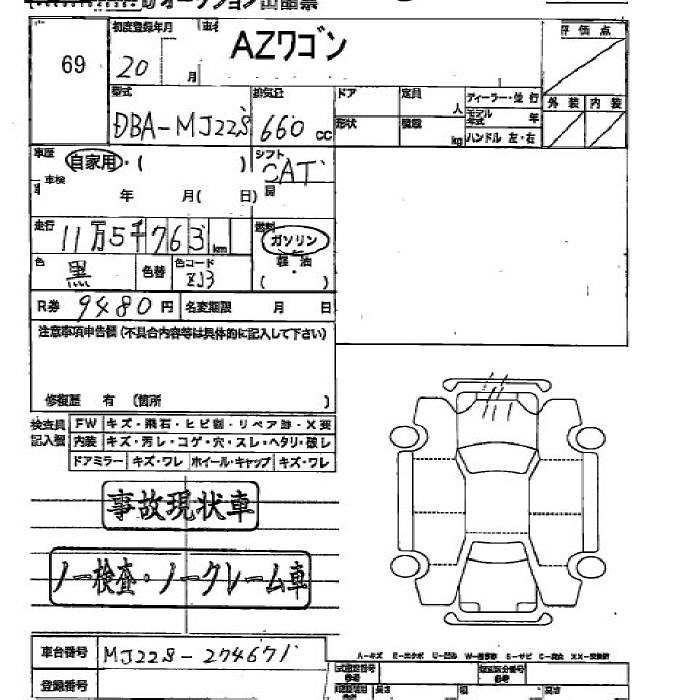 オークション出品票
69
初度登録年月 車名
20 月 AZワゴン
評価点
型式 排気量 ドア 定員 人 ディーラー・並行 外装 内装
DBA-MJ22S 660 cc 形状 kg モデル年式 年
ハンドル 左・右
車歴 自家用・( ) シフト CAT
車検 年 月( 日)
走行 11万5千763 km 燃料 ガソリン
軽油
( )
色 黒 色替 色コード ZJ3
R券 9480円 名変期限 月 日
注意事項申告欄(不具合内容等は具体的に記入して下さい)
修復歴 有 (箇所 )
検査員記入欄 FW キズ・飛石・ヒビ割・リペア跡・X要
内装 キズ・汚レ・コゲ・穴・スレ・ヘタリ・破レ
ドアミラー キズ・ワレ ホイール・キャップ キズ・ワレ
事故現状車
ノー検査・ノークレーム車
車台番号 MJ22S-274671
登録番号
A-キズ E-エクボ U-凹み S-サビ
長さ 幅 高さ